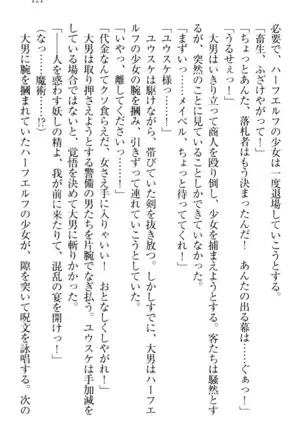 必要で、ハーフエルフの少女は一度退場していこうとする。
「畜生、ふざけやがって！」
「ちょっとあんた、落札者はもう決まったんだ！　あんたの出る幕は……ぐぁっ！」
「うるせぇっ！」
大男はいきり立って商人を殴り倒し、少女を捕まえようとする。客たちは騒然とす
るが、突然のことに見ていることしかできていなかった。
「まずいっ……メイベル、ちょっと待っててくれ！」
「ユウスケ様っ……！」
ユウスケは駆けながら、帯びていた剣を抜き放つ。しかしすでに、大男はハーフエ
ルフの少女の腕を摑み、引きずって連れていこうとしていた。
「いやっ、離してくださいっ……！」
「代金なんてクソ食らえだ、女さえ手に入りゃいい！　おとなしくしやがれ！」
大男は取り押さえようとする警備の男たちを片腕でなぎ払う。ユウスケは手加減を
している場合ではないと、覚悟を決めて大男に斬りかかろうとする。
「――人を惑わす妖しの精よ、我が前に来たりて、混乱の宴を開けっ！」
（なっ……魔術……!?）
大男に腕を摑まれていたハーフエルフの少女が、隙を突いて呪文を詠唱する。次の